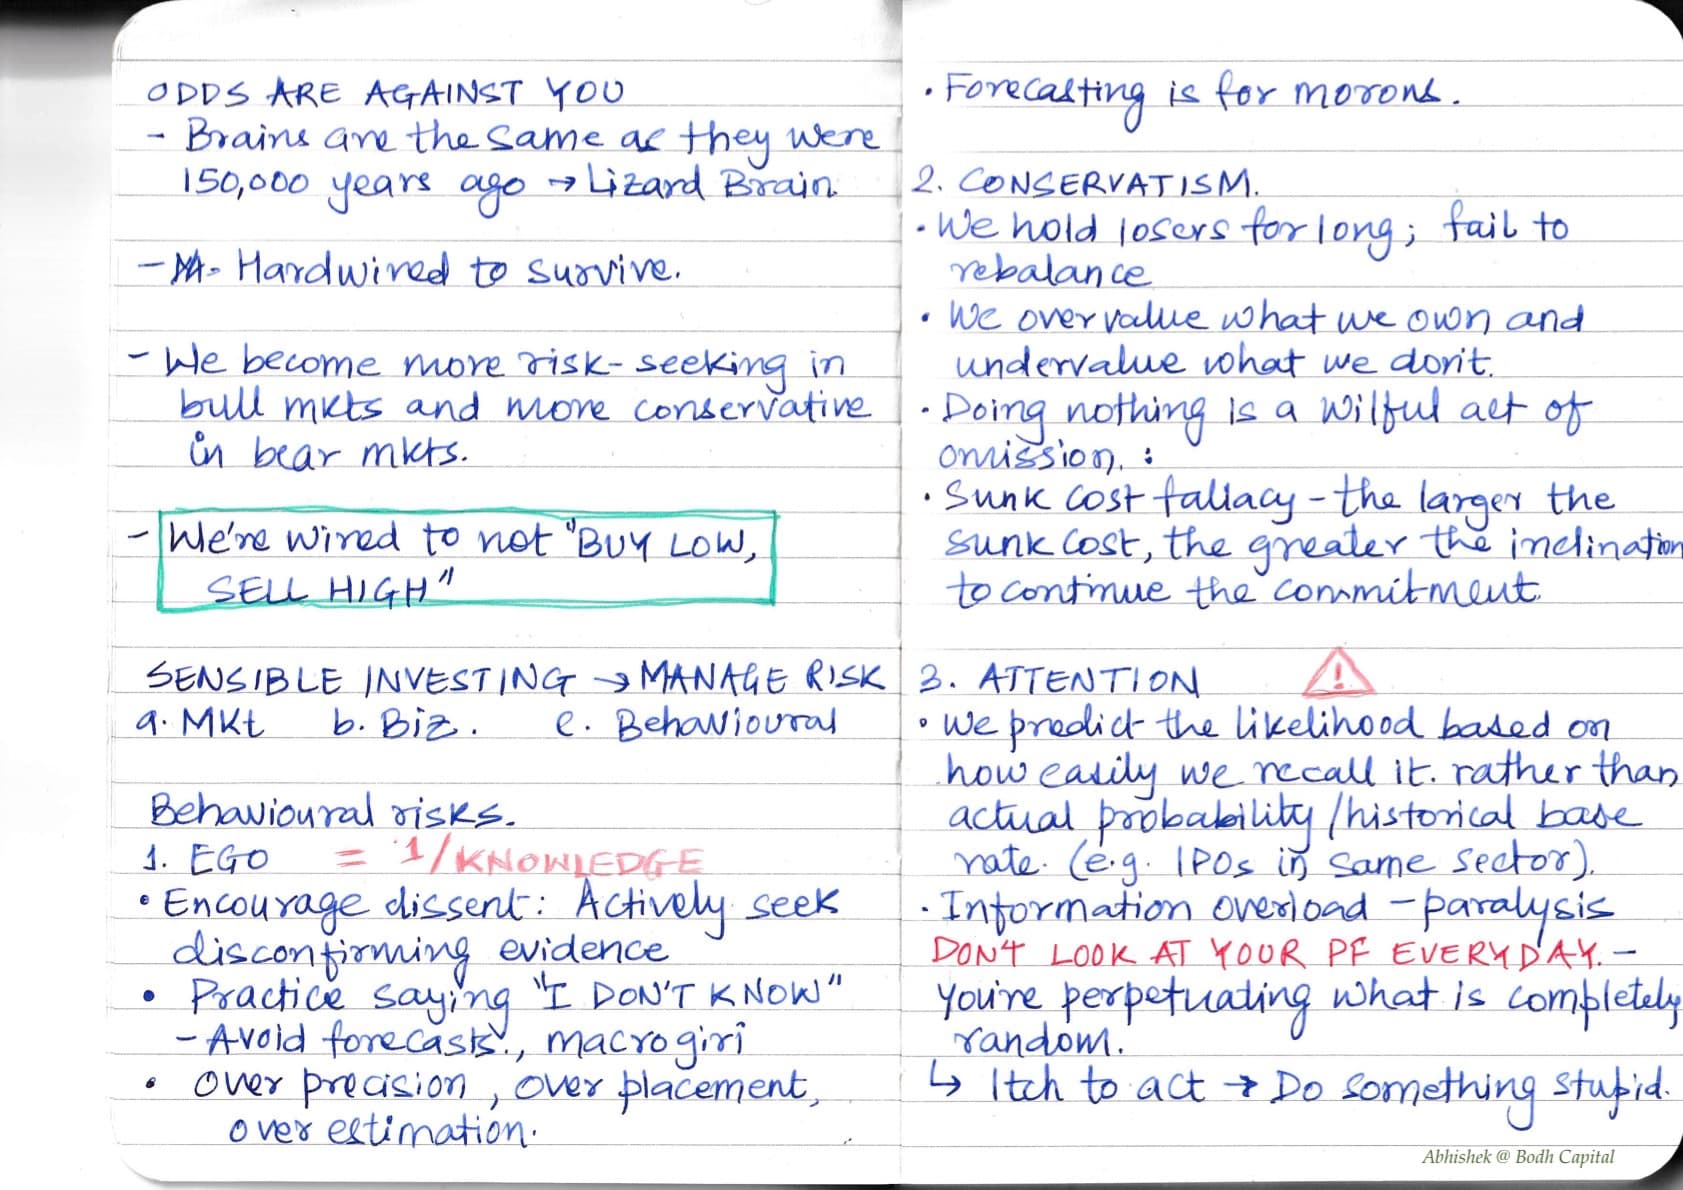 ODDS ARE AGAINST YOU
- Brains are the same as they were
150,000 years ago → Lizard Brain.
- Hardwired to survive.
- We become more risk-seeking in
bull mkts and more conservative
in bear mkts.
- We're wired to not "BUY LOW,
SELL HIGH"
SENSIBLE INVESTING → MANAGE RISK
a. Mkt b. Biz. c. Behavioural
Behavioural risks.
1. EGO = 1/KNOWLEDGE
• Encourage dissent: Actively seek
disconfirming evidence
• Practice saying "I DON'T KNOW"
- Avoid forecasts., macrogiri
• Over precision, over placement,
over estimation.
• Forecasting is for morons.
2. CONSERVATISM.
• We hold losers for long; fail to
rebalance
• We overvalue what we own and
undervalue what we don't.
• Doing nothing is a wilful act of
omission. :
• Sunk cost fallacy - the larger the
sunk cost, the greater the inclination
to continue the commitment.
3. ATTENTION
• We predict the likelihood based on
how easily we recall it. rather than
actual probability/historical base
rate. (e.g. IPOs in same sector).
• Information overload - paralysis
DON'T LOOK AT YOUR PF EVERYDAY. -
you're perpetuating what is completely
random.
↳ Itch to act → Do something stupid.
Abhishek @ Bodh Capital